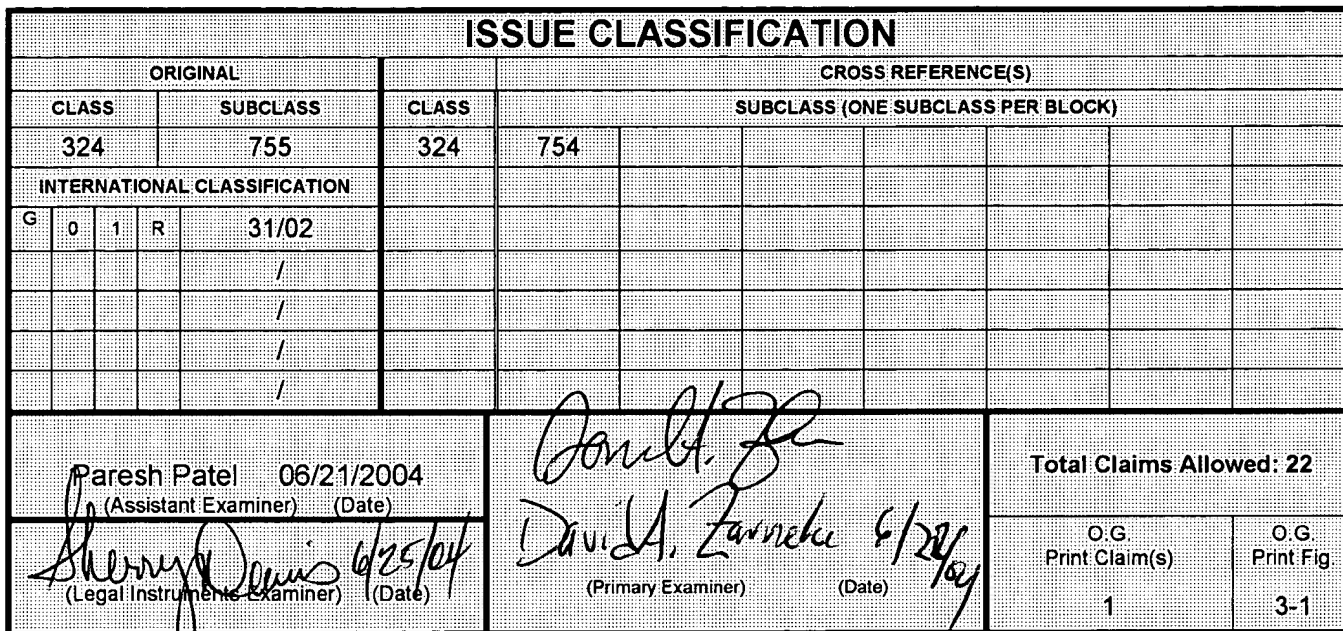 ISSUE CLASSIFICATION
ORIGINAL
CROSS REFERENCE(S)
CLASS SUBCLASS CLASS SUBCLASS (ONE SUBCLASS PER BLOCK)
324 755 324 754
INTERNATIONAL CLASSIFICATION
G 0 1 R 31/02
/
/
/
/
Paresh Patel 06/21/2004
(Assistant Examiner) (Date)
6/25/04
(Legal Instruments Examiner) (Date)
David A. Zarneke
(Primary Examiner) (Date)
Total Claims Allowed: 22
O.G.
Print Claim(s)
1
O.G.
Print Fig.
3-1